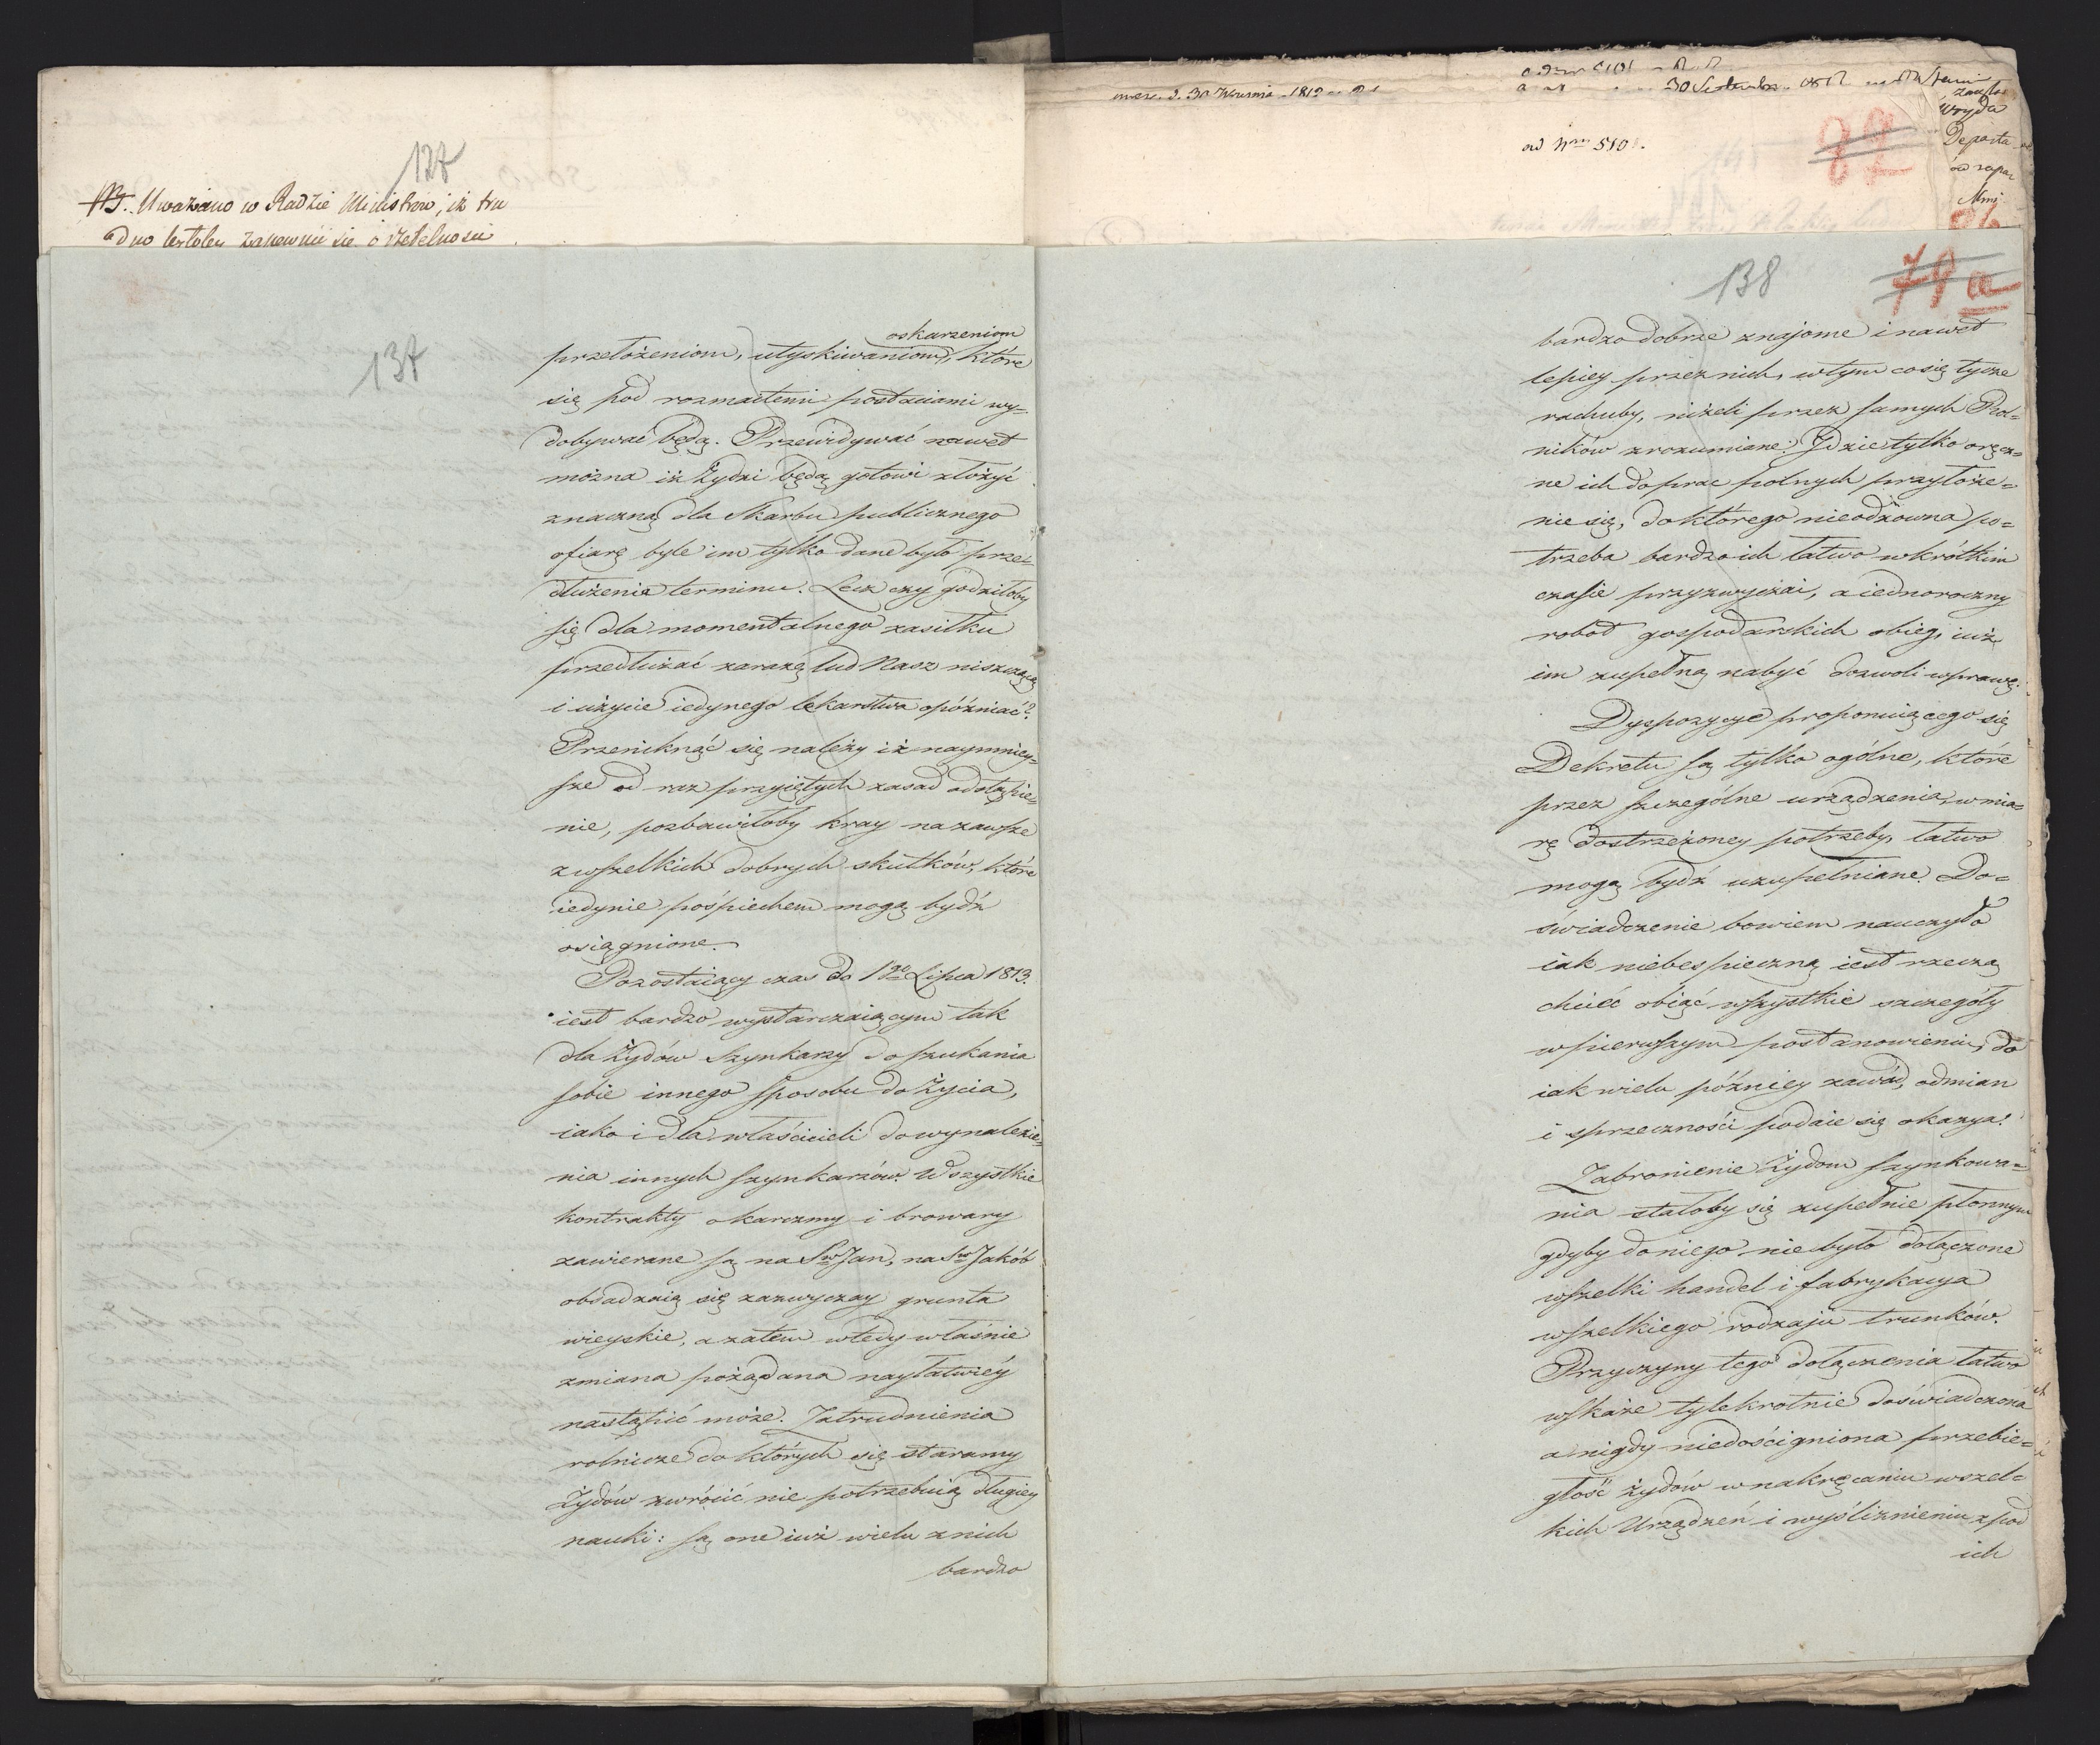 127
NB. Uważano w Radzie Ministrów, iż tru
dno
zapewnić się o rzetelności
137
oskarzeniom
przełożeniom, utyskiwaniom, które
się pod rozmaitemi postaciami wy=
dobywać będą. Przewidywać nawet
można iż Żydzi będą gotowi złożyć
znaczną dla Skarbu publicznego
ofiarę byle im tylko dane było prze=
dłużenie terminu. Lecz czy godziłoby
się dla momentalnego zasiłku
przedłużać zarazę lud Nasz niszczącą
i użycie iedynego lekarstwa opóźniać?
Przeniknąć się należy iż naymniey=
sze od raz przyiętych zasad odstąpie=
nie, pozbawiłoby kray na zawsze
z wszelkich dobrych skutków, które
iedynie pośpiechem mogą bydź
osiągnione.
Pozostaiący czas do 1go Lipca 1813.
iest bardzo wystarczaiącym tak
dla Żydów Szynkarzy do szukania
sobie innego sposobu do życia,
iako i dla właścicieli do wynalezie=
nia innych szynkarzów. Wszystkie
kontrakty o karczmy i browary
zawierane są na Sw Jan, na Sw Jakób
obsadzaią się zazwyczay grunta
wieyskie, a zatem wtedy właśnie
zmiana pożądana nayłatwiéy
nastąpić może. Zatrudnienia
rolnicze do których się staramy
Żydów zwrócić nie potrzebuią długiey
nauki: są one iuż wielu z nich
bardzo
30 Września 1812
30 Septembra
ad Nrm 510.
82
Wyda
Departa
138
78 a
bardzo dobrze znajome i nawet
lepiey przez nich, w tym co się tycze
rachuby, niżeli przez samych Rol=
ników zrozumiane. Jdzie tylko o ręcz=
ne ich do prac polnych przyłoże=
nie się, do którego nieodzowna po=
trzeba bardzo ich łatwo w krótkim
czasie przyzwyczai, a iednoroczny
robot gospodarskich obieg, iuż
im zupełną nabyć dozwoli wprawę.
Dyspozycye proponuiącego się
Dekretu są tylko ogólne, które
przez szczególne urządzenia, w mia=
rę dostrzeżoney potrzeby, łatwo
mogą bydź uzupełniane. Do=
świadczenie bowiem nauczyło
iak niebespieczną iest rzeczą
chcieć obiąć wszystkie szczegóły
w pierwszym postanowieniu, do
iak wielu późniey zawad, odmian
i sprzeczności podaie się okazya.
Zabronienie Żydom szynkowa=
nia stałoby się zupełnie płonnym
gdyby do niego nie było dołączone
wszelki handel i fabrykacya
wszelkiego rodzaju trunków.
Przyczyny tego dołączenia łatwo
wskaże tylekrotnie doświadczona
a nigdy niedościgniona przebie=
głość żydów w nakręcaniu wszel=
kich Urządzeń i wyśliznieniu z pod
ich